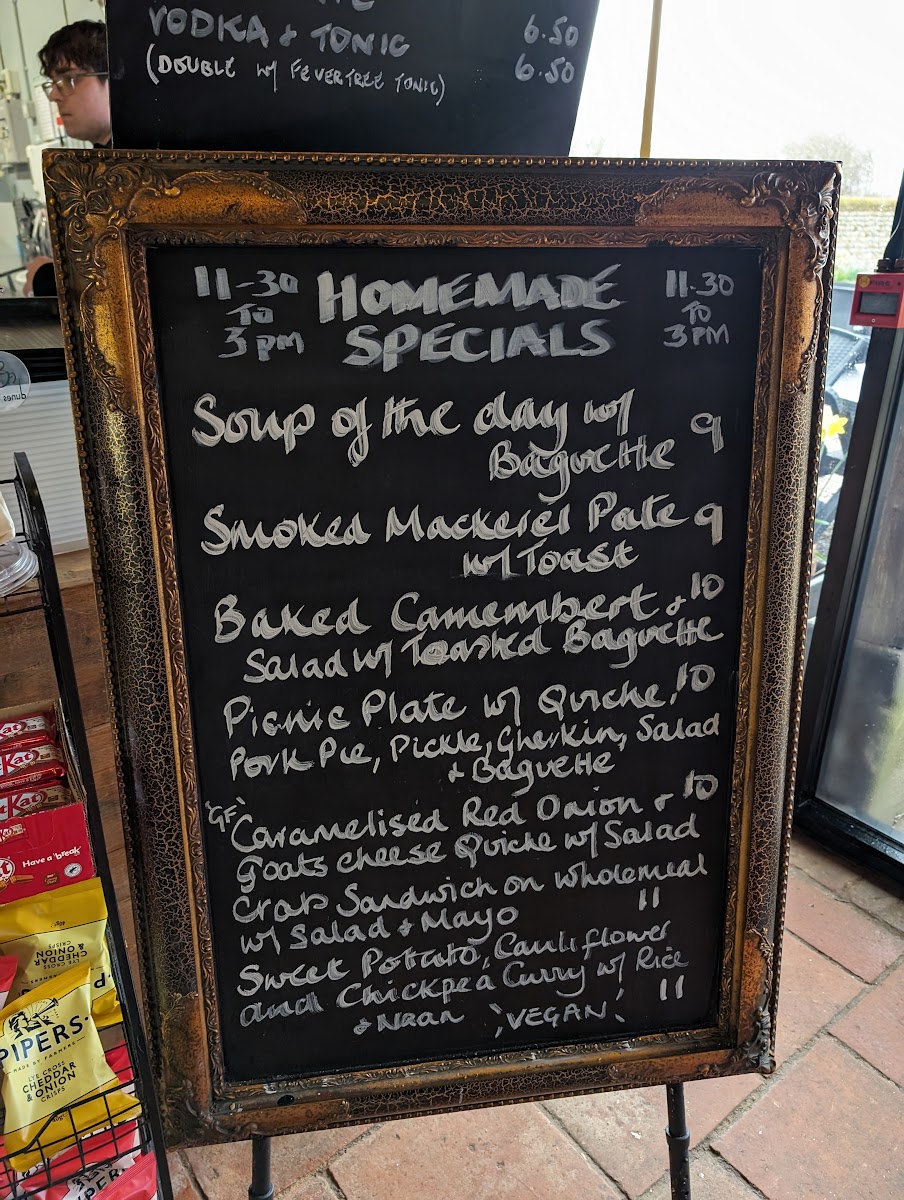 VODKA & TONIC 6.50
(DOUBLE W/ FEVERTREE TONIC) 6.50
11-30 TO 3PM
HOMEMADE
SPECIALS
11.30 TO 3PM
Soup of the day w/
Baguette 9
Smoked Mackerel Pate 9
w/ Toast
Baked Camembert & 10
Salad w/ Toasted Baguette
Picnic Plate w/ Quiche, 10
Pork Pie, Pickle, Gherkin, Salad
& Baguette
'GF' Caramelised Red Onion & 10
Goats cheese Quiche w/ Salad
Crab Sandwich on wholemeal
w/ Salad & Mayo 11
Sweet Potato, Cauliflower
and Chickpea Curry w/ Rice
& Naan 'VEGAN' 11
FIRE
dunes
KitKat
KitKat
Have a break
LYE CROSS
CHEDDAR
& ONION
CRISPS
PIPERS
MADE BY FARMERS
LYE CROSS
CHEDDAR
& ONION
CRISPS